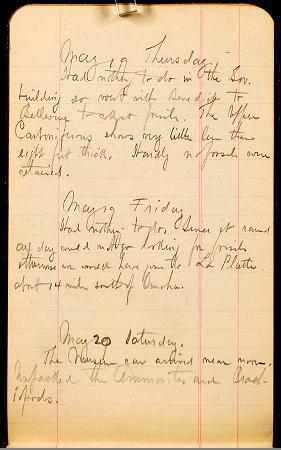 May 19 Thursday
Had nothin to do in the Gov.
building so went with Benedict to
Bellevue to collect fossils. The Upper
Carboniferous shows very little less than
eight feet thick. Hardly no fossils were
retained.
May 19 Friday
Had nothin to do. Since it rained
all day could not go looking for fossils
otherwise we would have gone to La Platte
about 14 miles south of Omaha.
May 20 Saturday.
The Museum car arrived near noon.
Unpacked the Ammonites and Brach-
iopods.